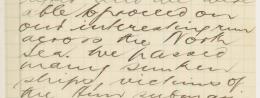 able to proceed on
our interesting run
across the North
Sea. We passed
many sunken
ships, victims of
the Hun submar